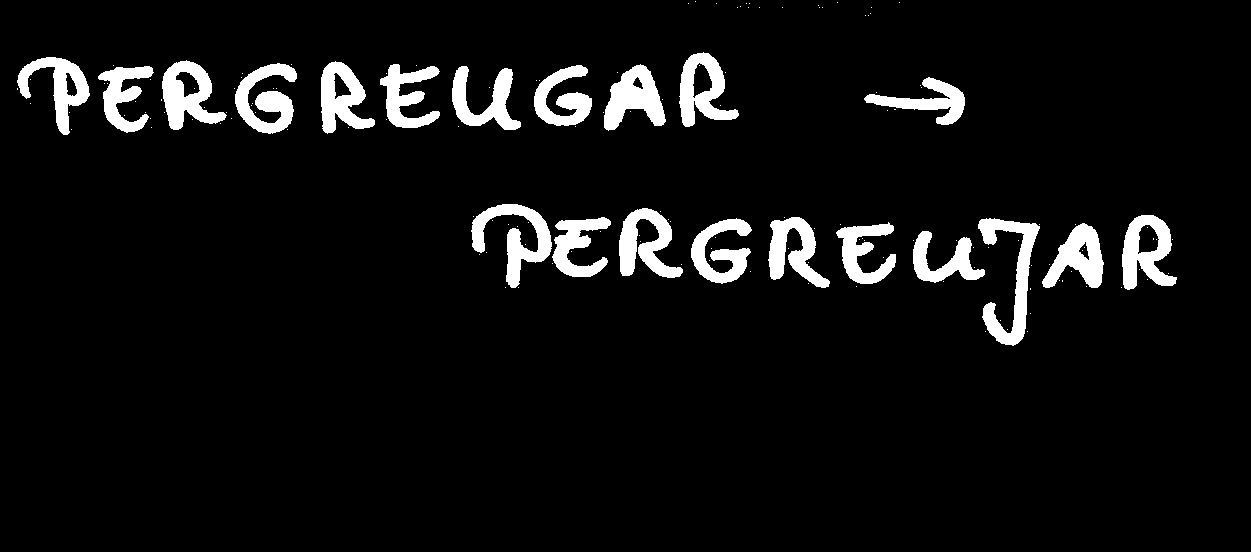 PERGREUGAR →
PERGREUJAR